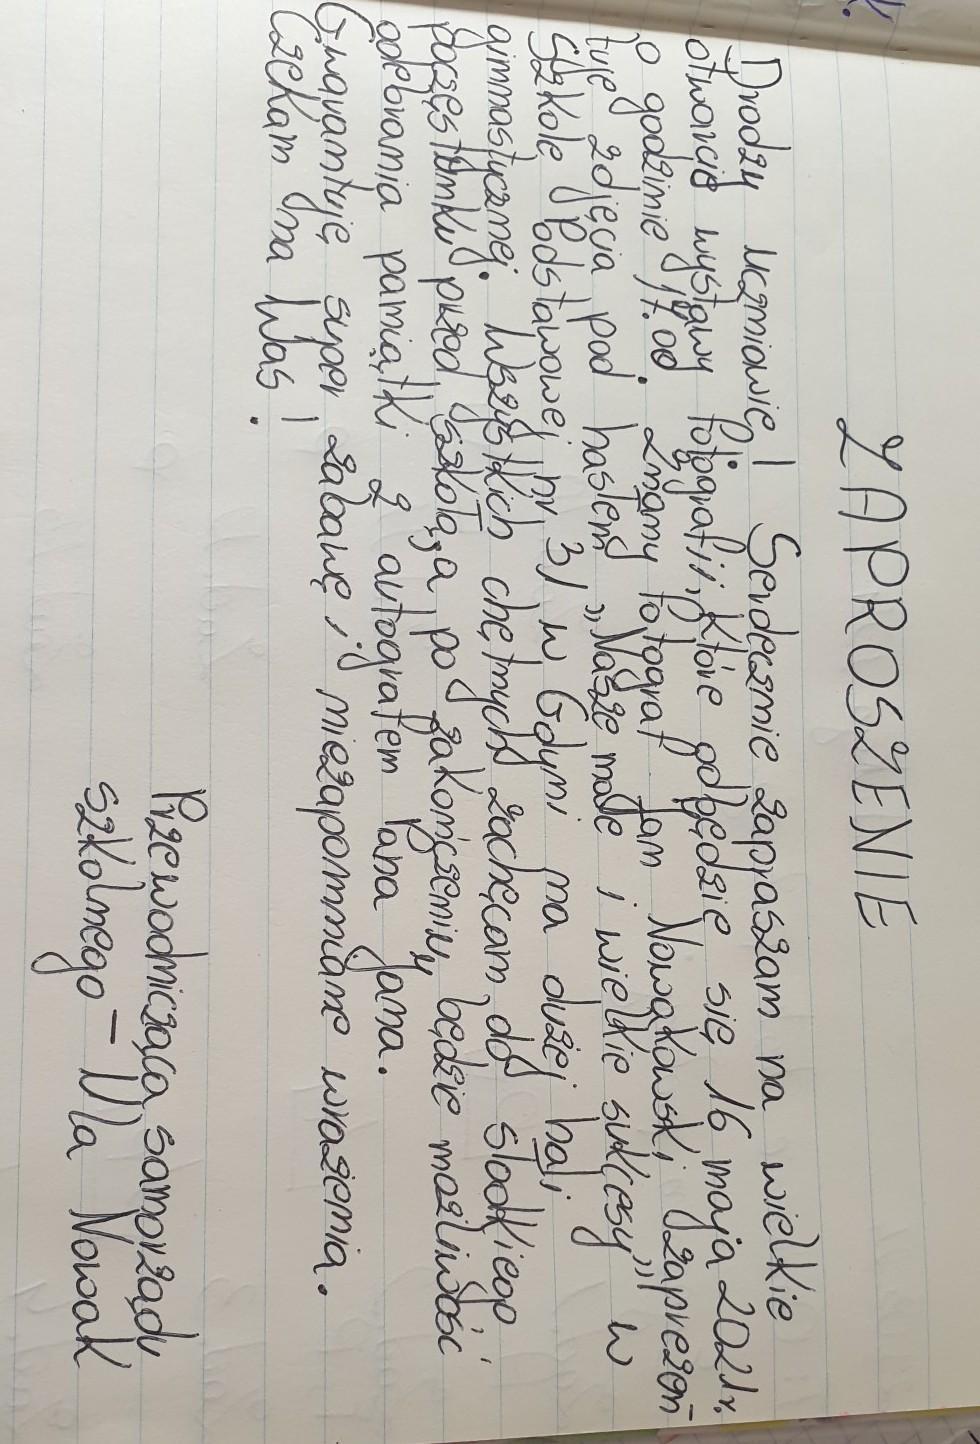 ZAPROSZENIE
Drodzy uczniowie! Serdecznie zapraszam na wielkie
otwarcie wystawy fotografii, które odbędzie się 16 maja 2021r.
o godzinie 17.00. Znany fotograf Jan Nowakowski zaprezen-
tuje zdjęcia pod hasłem „Nasze małe i wielkie sukcesy” w
Szkole Podstawowej nr 31 w Gdyni na dużej hali
gimnastycznej. Wszystkich chętnych zachęcam do słodkiego
poczęstunku przed szkołą, a po zakończeniu będzie możliwość
odebrania pamiątki z autografem Pana Jana.
Gwarantuję super zabawę i niezapomniane wrażenia.
Czekam na Was!
Przewodnicząca samorządu
szkolnego - Ula Nowak